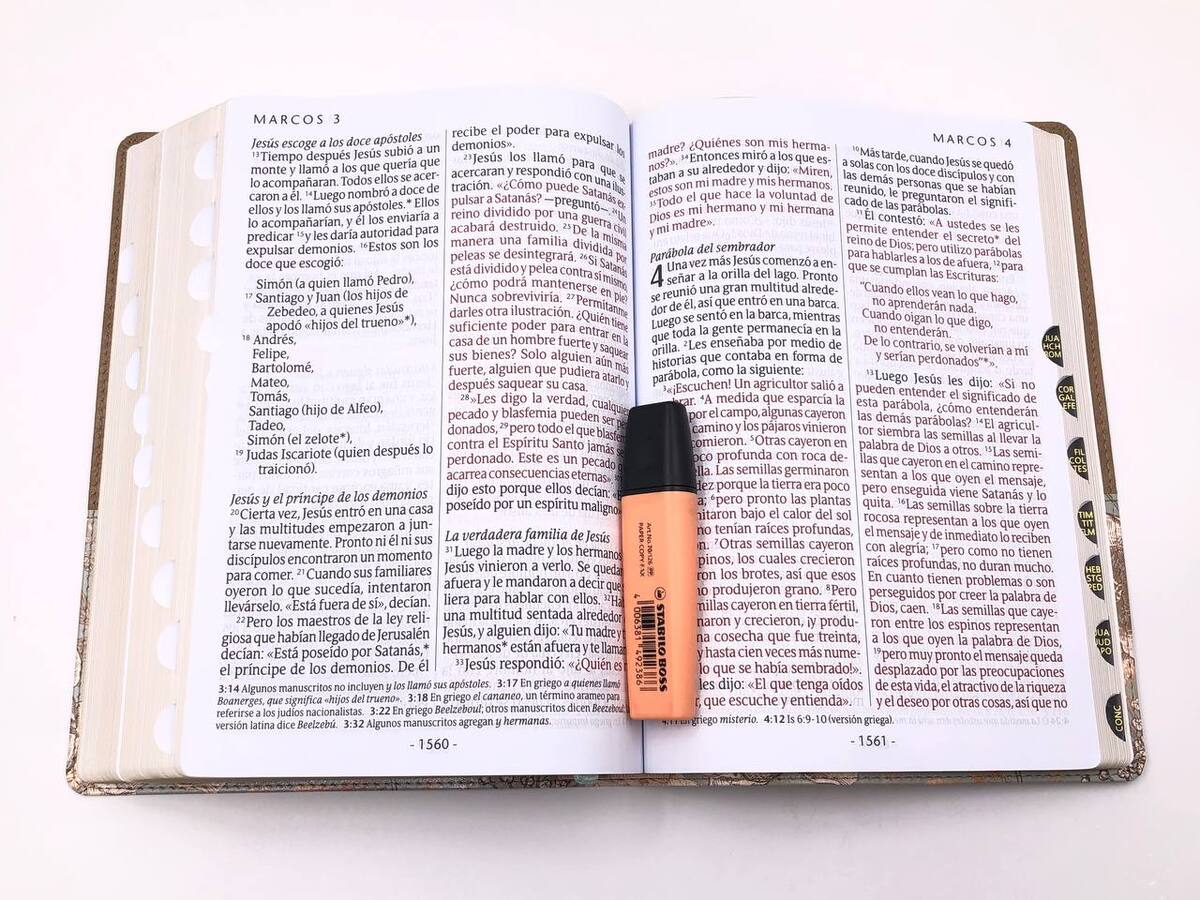 MARCOS 3
Jesús escoge a los doce apóstoles
13 Tiempo después Jesús subió a un
monte y llamó a los que quería que
lo acompañaran. Todos ellos se acer-
caron a él. 14 Luego nombró a doce de
ellos y los llamó sus apóstoles.* Ellos
lo acompañarían, y él los enviaría a
predicar 15 y les daría autoridad para
expulsar demonios. 16 Estos son los
doce que escogió:
Simón (a quien llamó Pedro),
17 Santiago y Juan (los hijos de
Zebedeo, a quienes Jesús
apodó «hijos del trueno»*),
18 Andrés,
Felipe,
Bartolomé,
Mateo,
Tomás,
Santiago (hijo de Alfeo),
Tadeo,
Simón (el zelote*),
19 Judas Iscariote (quien después lo
traicionó).
Jesús y el príncipe de los demonios
20 Cierta vez, Jesús entró en una casa
y las multitudes empezaron a jun-
tarse nuevamente. Pronto ni él ni sus
discípulos encontraron un momento
para comer. 21 Cuando sus familiares
oyeron lo que sucedía, intentaron
llevárselo. «Está fuera de sí», decían.
22 Pero los maestros de la ley reli-
giosa que habían llegado de Jerusalén
decían: «Está poseído por Satanás,*
el príncipe de los demonios. De él
recibe el poder para expulsar los
demonios».
23 Jesús los llamó para que se
acercaran y respondió con una ilus-
tración. «¿Cómo puede Satanás ex-
pulsar a Satanás? —preguntó—. 24 Un
reino dividido por una guerra civil
acabará destruido. 25 De la misma
manera una familia dividida por
peleas se desintegrará. 26 Si Satanás
está dividido y pelea contra sí mismo,
¿cómo podrá mantenerse en pie?
Nunca sobreviviría. 27 Permítanme
darles otra ilustración. ¿Quién tiene
suficiente poder para entrar en la
casa de un hombre fuerte y saquear
sus bienes? Solo alguien aún más
fuerte, alguien que pudiera atarlo y
después saquear su casa.
28 »Les digo la verdad, cualquier
pecado y blasfemia pueden ser per-
donados, 29 pero todo el que blasfeme
contra el Espíritu Santo jamás será
perdonado. Este es un pecado que
acarrea consecuencias eternas».
dijo esto porque ellos decían:
poseído por un espíritu maligno».
La verdadera familia de Jesús
31 Luego la madre y los hermanos
Jesús vinieron a verlo. Se quedaron
afuera y le mandaron a decir que
liera para hablar con ellos. 32
una multitud sentada alrededor
Jesús, y alguien dijo: «Tu madre y
hermanos* están afuera y te llaman
33 Jesús respondió: «¿Quién es
3:14 Algunos manuscritos no incluyen y los llamó sus apóstoles. 3:17 En griego a quienes llamó
Boanerges, que significa «hijos del trueno». 3:18 En griego el cananeo, un término arameo para
referirse a los judíos nacionalistas. 3:22 En griego Beelzeboul; otros manuscritos dicen Beezeboul;
versión latina dice Beelzebú. 3:32 Algunos manuscritos agregan y hermanas.
- 1560 -
MARCOS 4
madre? ¿Quiénes son mis herma-
nos?». 34 Entonces miró a los que es-
taban a su alrededor y dijo: «Miren,
estos son mi madre y mis hermanos.
35 Todo el que hace la voluntad de
Dios es mi hermano y mi hermana
y mi madre».
Parábola del sembrador
4 Una vez más Jesús comenzó a en-
señar a la orilla del lago. Pronto
se reunió una gran multitud alrede-
dor de él, así que entró en una barca.
Luego se sentó en la barca, mientras
que toda la gente permanecía en la
orilla. 2 Les enseñaba por medio de
historias que contaba en forma de
parábola, como la siguiente:
3 «¡Escuchen! Un agricultor salió a
brar. 4 A medida que esparcía la
por el campo, algunas cayeron
camino y los pájaros vinieron
comieron. 5 Otras cayeron en
poco profunda con roca de-
ella. Las semillas germinaron
porque la tierra era poco
6 pero pronto las plantas
bajo el calor del sol
no tenían raíces profundas,
7 Otras semillas cayeron
pinos, los cuales crecieron
ron los brotes, así que esos
produjeron grano. 8 Pero
semillas cayeron en tierra fértil,
naron y crecieron, ¡y produ-
una cosecha que fue treinta,
y hasta cien veces más nume-
lo que se había sembrado!».
les dijo: «El que tenga oídos
que escuche y entienda».
10 Más tarde, cuando Jesús se quedó
a solas con los doce discípulos y con
las demás personas que se habían
reunido, le preguntaron el signifi-
cado de las parábolas.
11 Él contestó: «A ustedes se les
permite entender el secreto* del
reino de Dios; pero utilizo parábolas
para hablarles a los de afuera, 12 para
que se cumplan las Escrituras:
“Cuando ellos vean lo que hago,
no aprenderán nada.
Cuando oigan lo que digo,
no entenderán.
De lo contrario, se volverían a mí
y serían perdonados”*».
13 Luego Jesús les dijo: «Si no
pueden entender el significado de
esta parábola, ¿cómo entenderán
las demás parábolas? 14 El agricul-
tor siembra las semillas al llevar la
palabra de Dios a otros. 15 Las semi-
llas que cayeron en el camino repre-
sentan a los que oyen el mensaje,
pero enseguida viene Satanás y lo
quita. 16 Las semillas sobre la tierra
rocosa representan a los que oyen
el mensaje y de inmediato lo reciben
con alegría; 17 pero como no tienen
raíces profundas, no duran mucho.
En cuanto tienen problemas o son
perseguidos por creer la palabra de
Dios, caen. 18 Las semillas que caye-
ron entre los espinos representan
a los que oyen la palabra de Dios,
19 pero muy pronto el mensaje queda
desplazado por las preocupaciones
de esta vida, el atractivo de la riqueza
y el deseo por otras cosas, así que no
4:11 En griego misterio. 4:12 Is 6:9-10 (versión griega).
- 1561 -
JUA
HCH
ROM
COR
GAL
EFE
FIL
COL
TES
TIM
TIT
FLM
HEB
STG
PED
JUA
JUD
APO
CONC
Art.No. 70/126
PAPER COPY FAX
STABILO BOSS
4 006381 492386